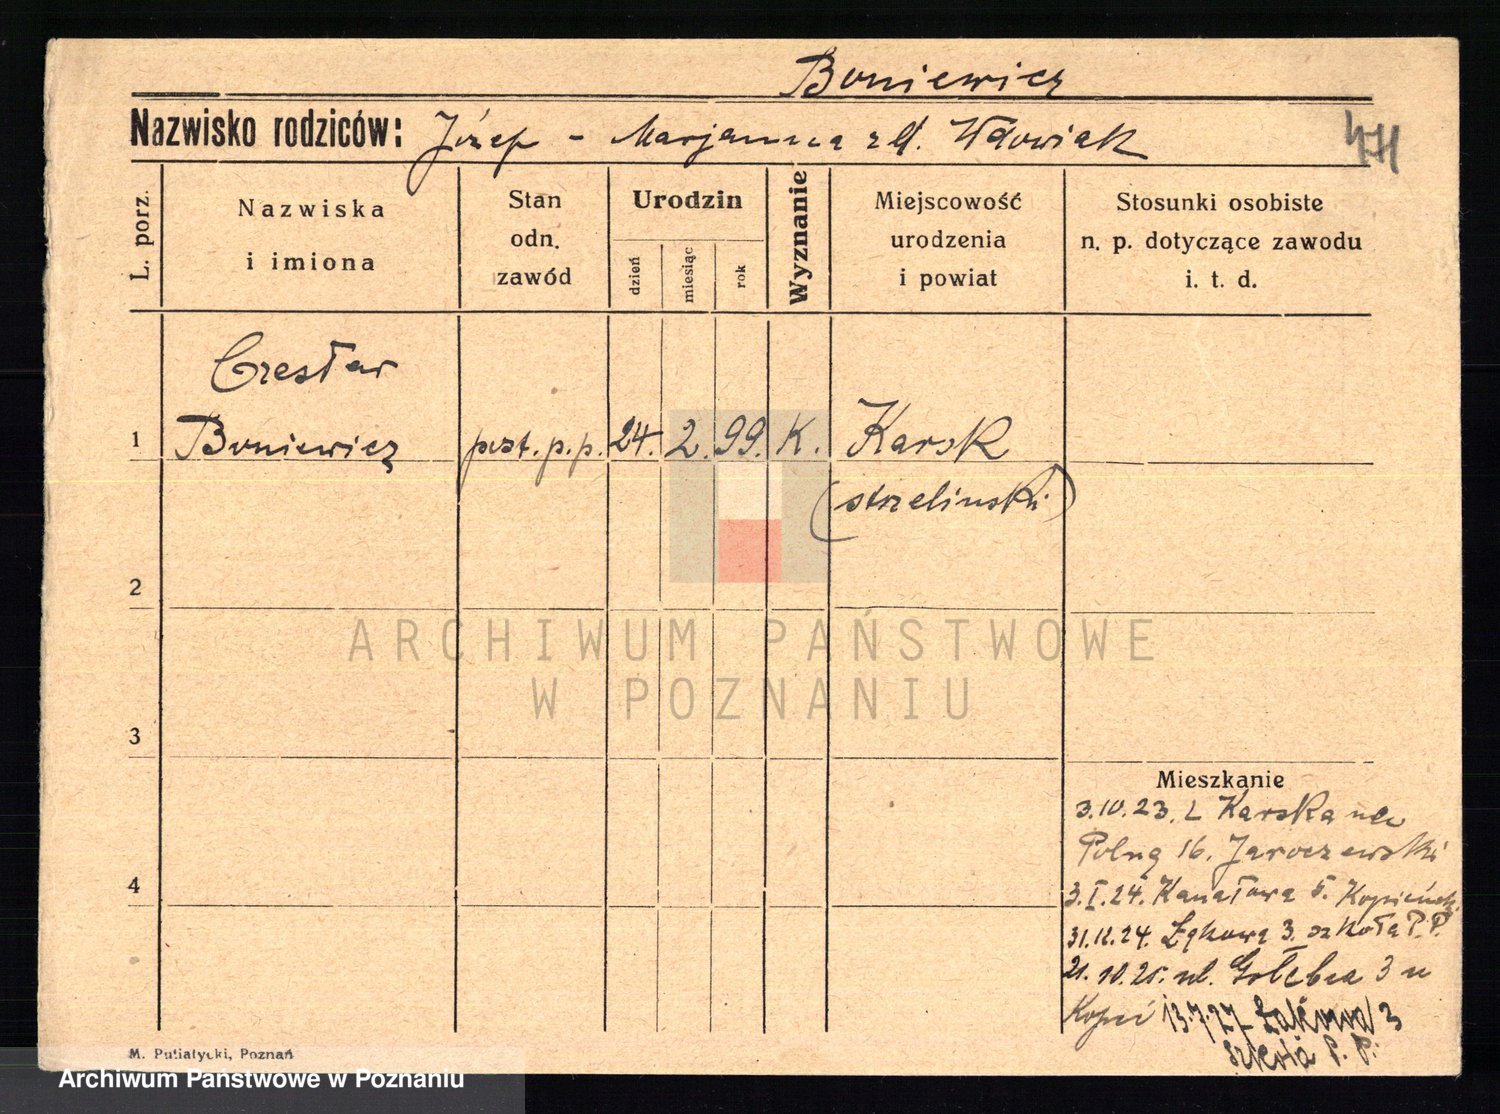 Boniewicz
Nazwisko rodziców: Józef - Marjanna z d. Wdowiak
471
L. porz.
Nazwiska
i imiona
Stan
odn.
zawód
Urodzin
dzień
miesiąc
rok
Wyznanie
Miejscowość
urodzenia
i powiat
Stosunki osobiste
n. p. dotyczące zawodu
i. t. d.
Czesław
1 Boniewicz post. p. p. 24. 2. 99. K. Karsk
(strzelinski)
2
ARCHIWUM PAŃSTWOWE
W POZNANIU
3
Mieszkanie
3.10.23. z Karska na
Polną 16. Jaroczewski
4
3.I.24. Kanałowa 5.
31.12.24. Łąkowa 3. szkoła P.P.
21.10.25. ul. Gołębia 3 u
13.7.27 Łąkowa 3
szkoła P. P.
M. Putiatycki, Poznań
Archiwum Państwowe w Poznaniu